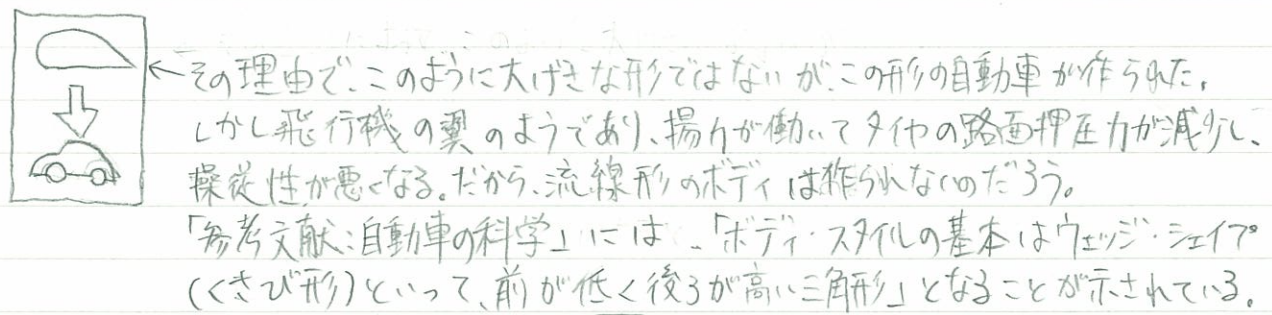 ←その理由で、このように大げさな形ではないが、この形の自動車が作られた。
しかし飛行機の翼のようであり、揚力が働いてタイヤの路面押圧力が減少し、
操従性が悪くなる。だから、流線形のボディは作られないのだろう。
「参考文献:自動車の科学」には、「ボディ・スタイルの基本はウェッジ・シェイプ
(くさび形)といって、前が低く後ろが高い三角形」となることが示されている。